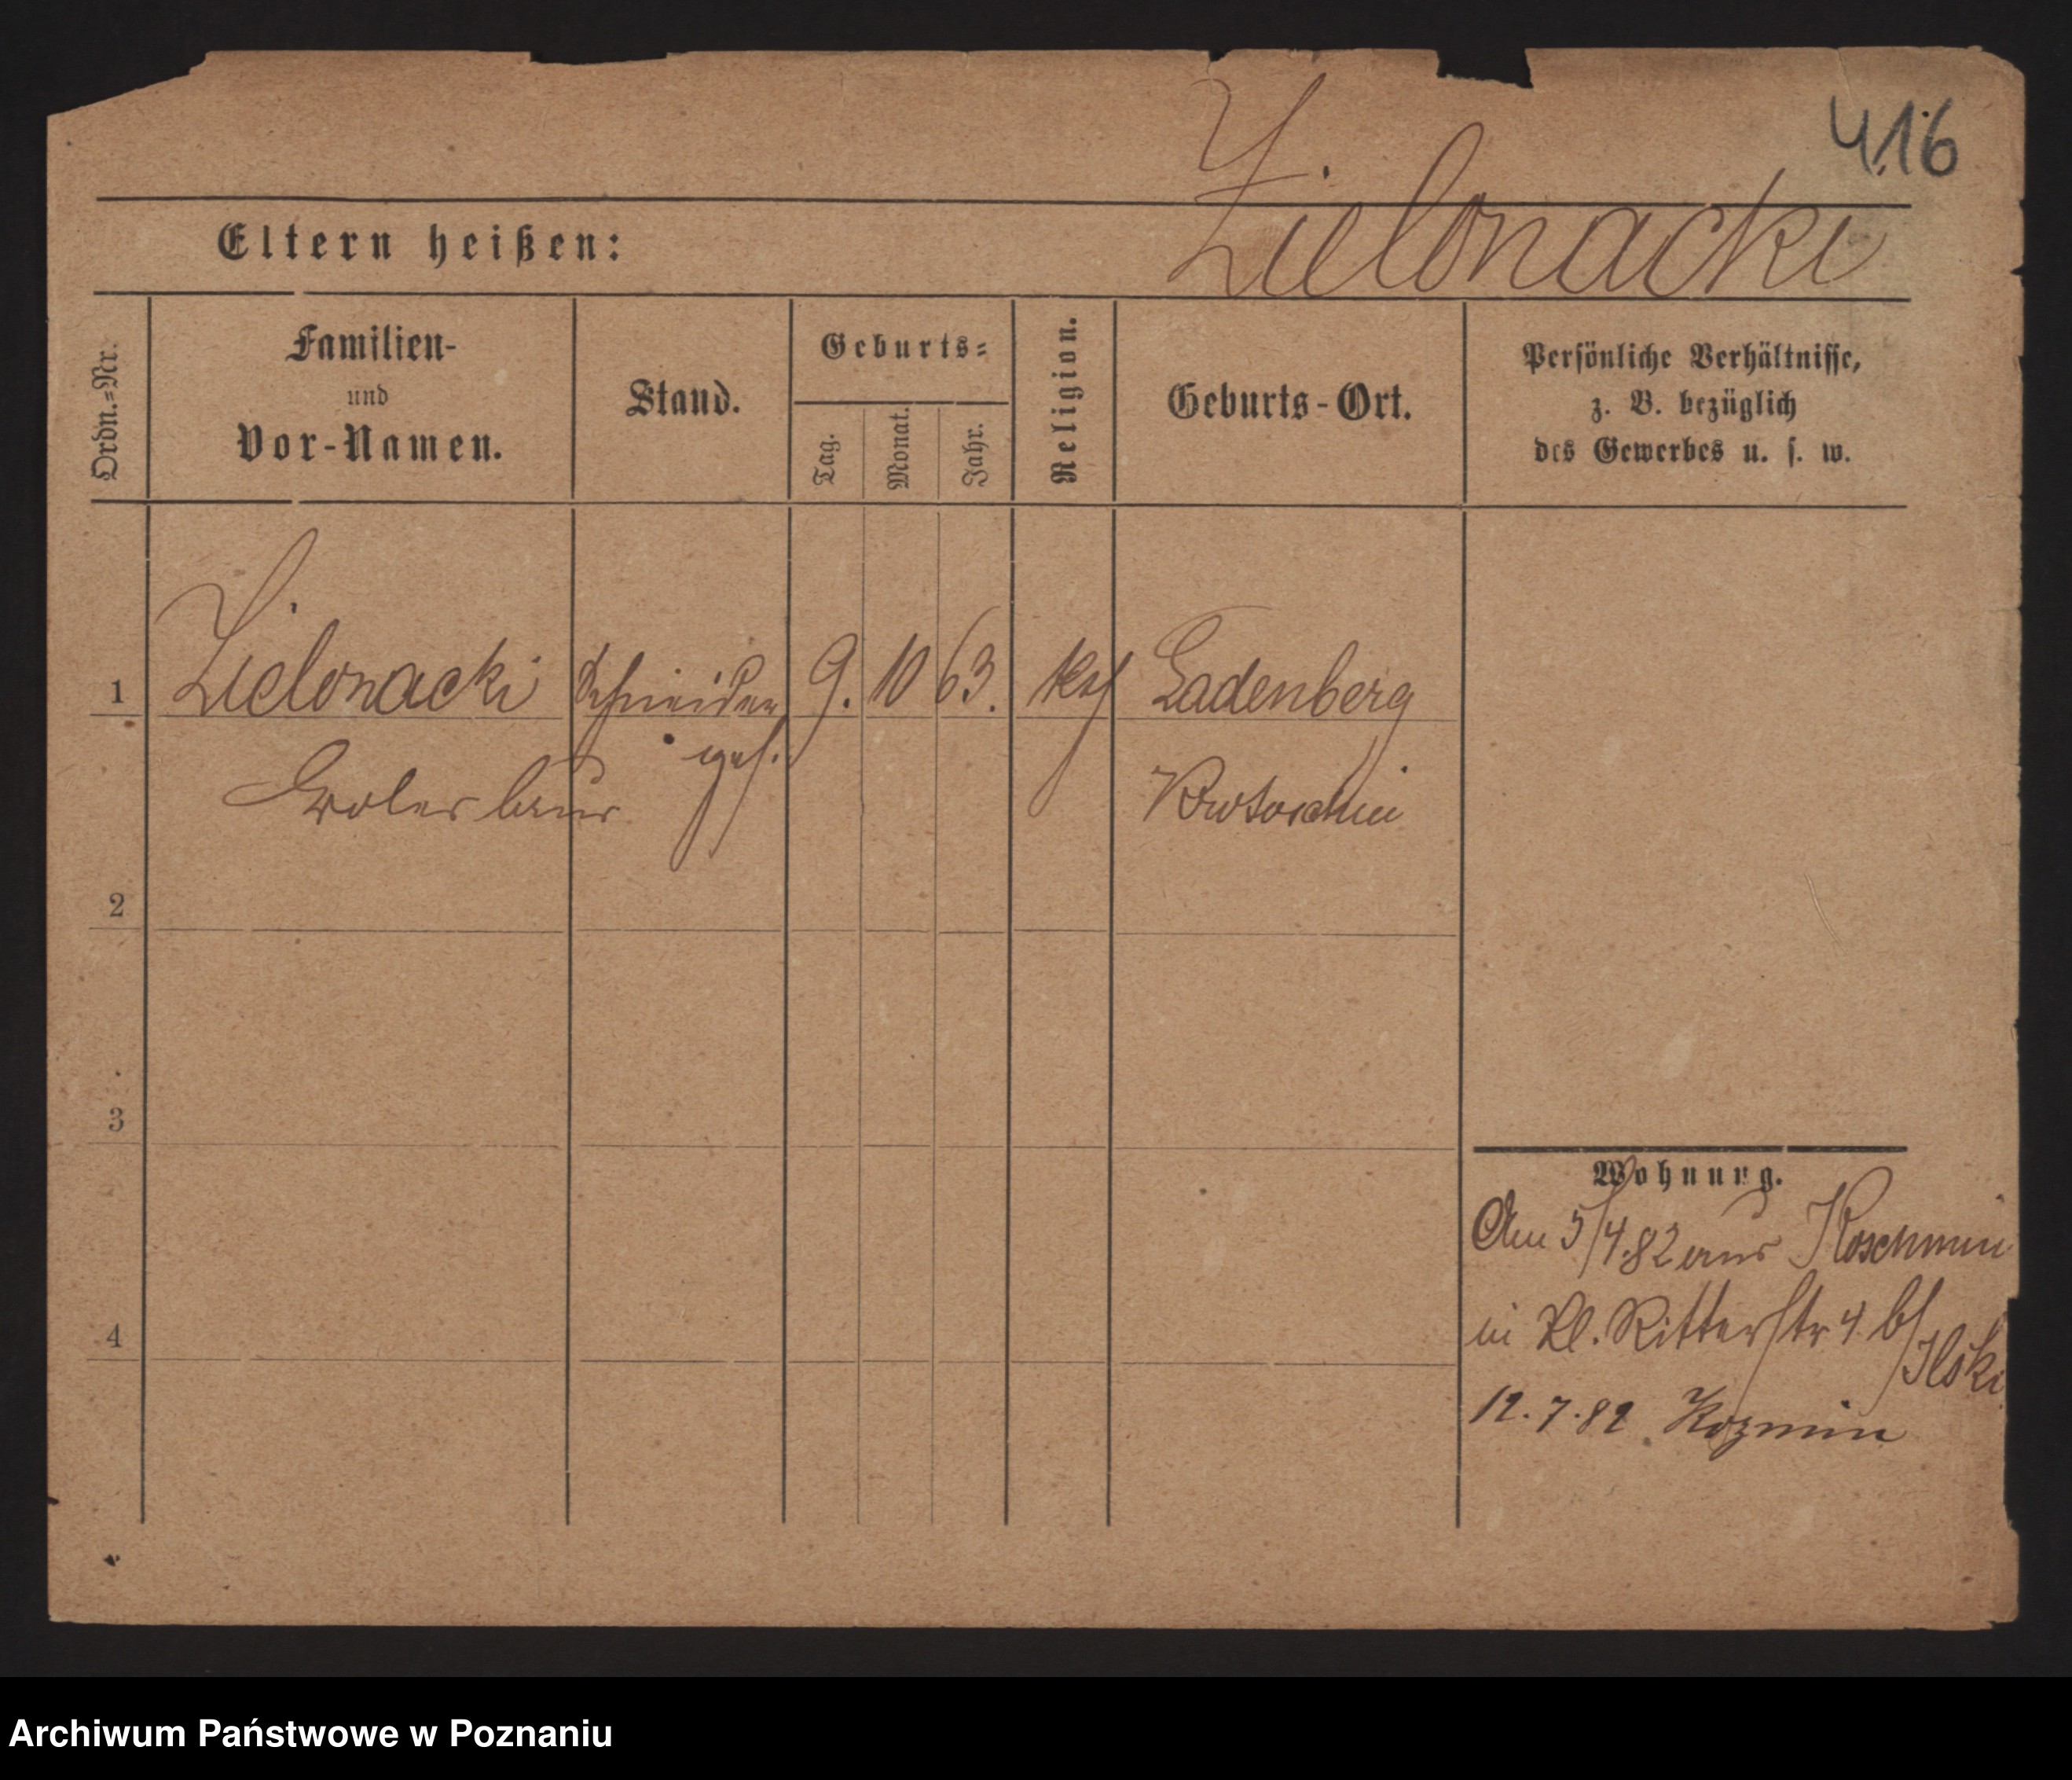 416
Zielonacki
Eltern heißen:
Ordn.=Nr.
Familien-
und
Vor-Namen.
Stand.
Geburts=
Tag.
Monat.
Jahr.
Religion.
Geburts-Ort.
Persönliche Verhältnisse,
z. B. bezüglich
des Gewerbes u. s. w.
1
Zielonacki Schneider 9. 10 63. kath Ladenberg
ges.
Krotoschin
2
3
4
Wohnung.
Am 5/4.82 aus Koschmin
in Kl. Ritterstr 4 b/ Ilski
12.7.82 Kozmin
Archiwum Państwowe w Poznaniu